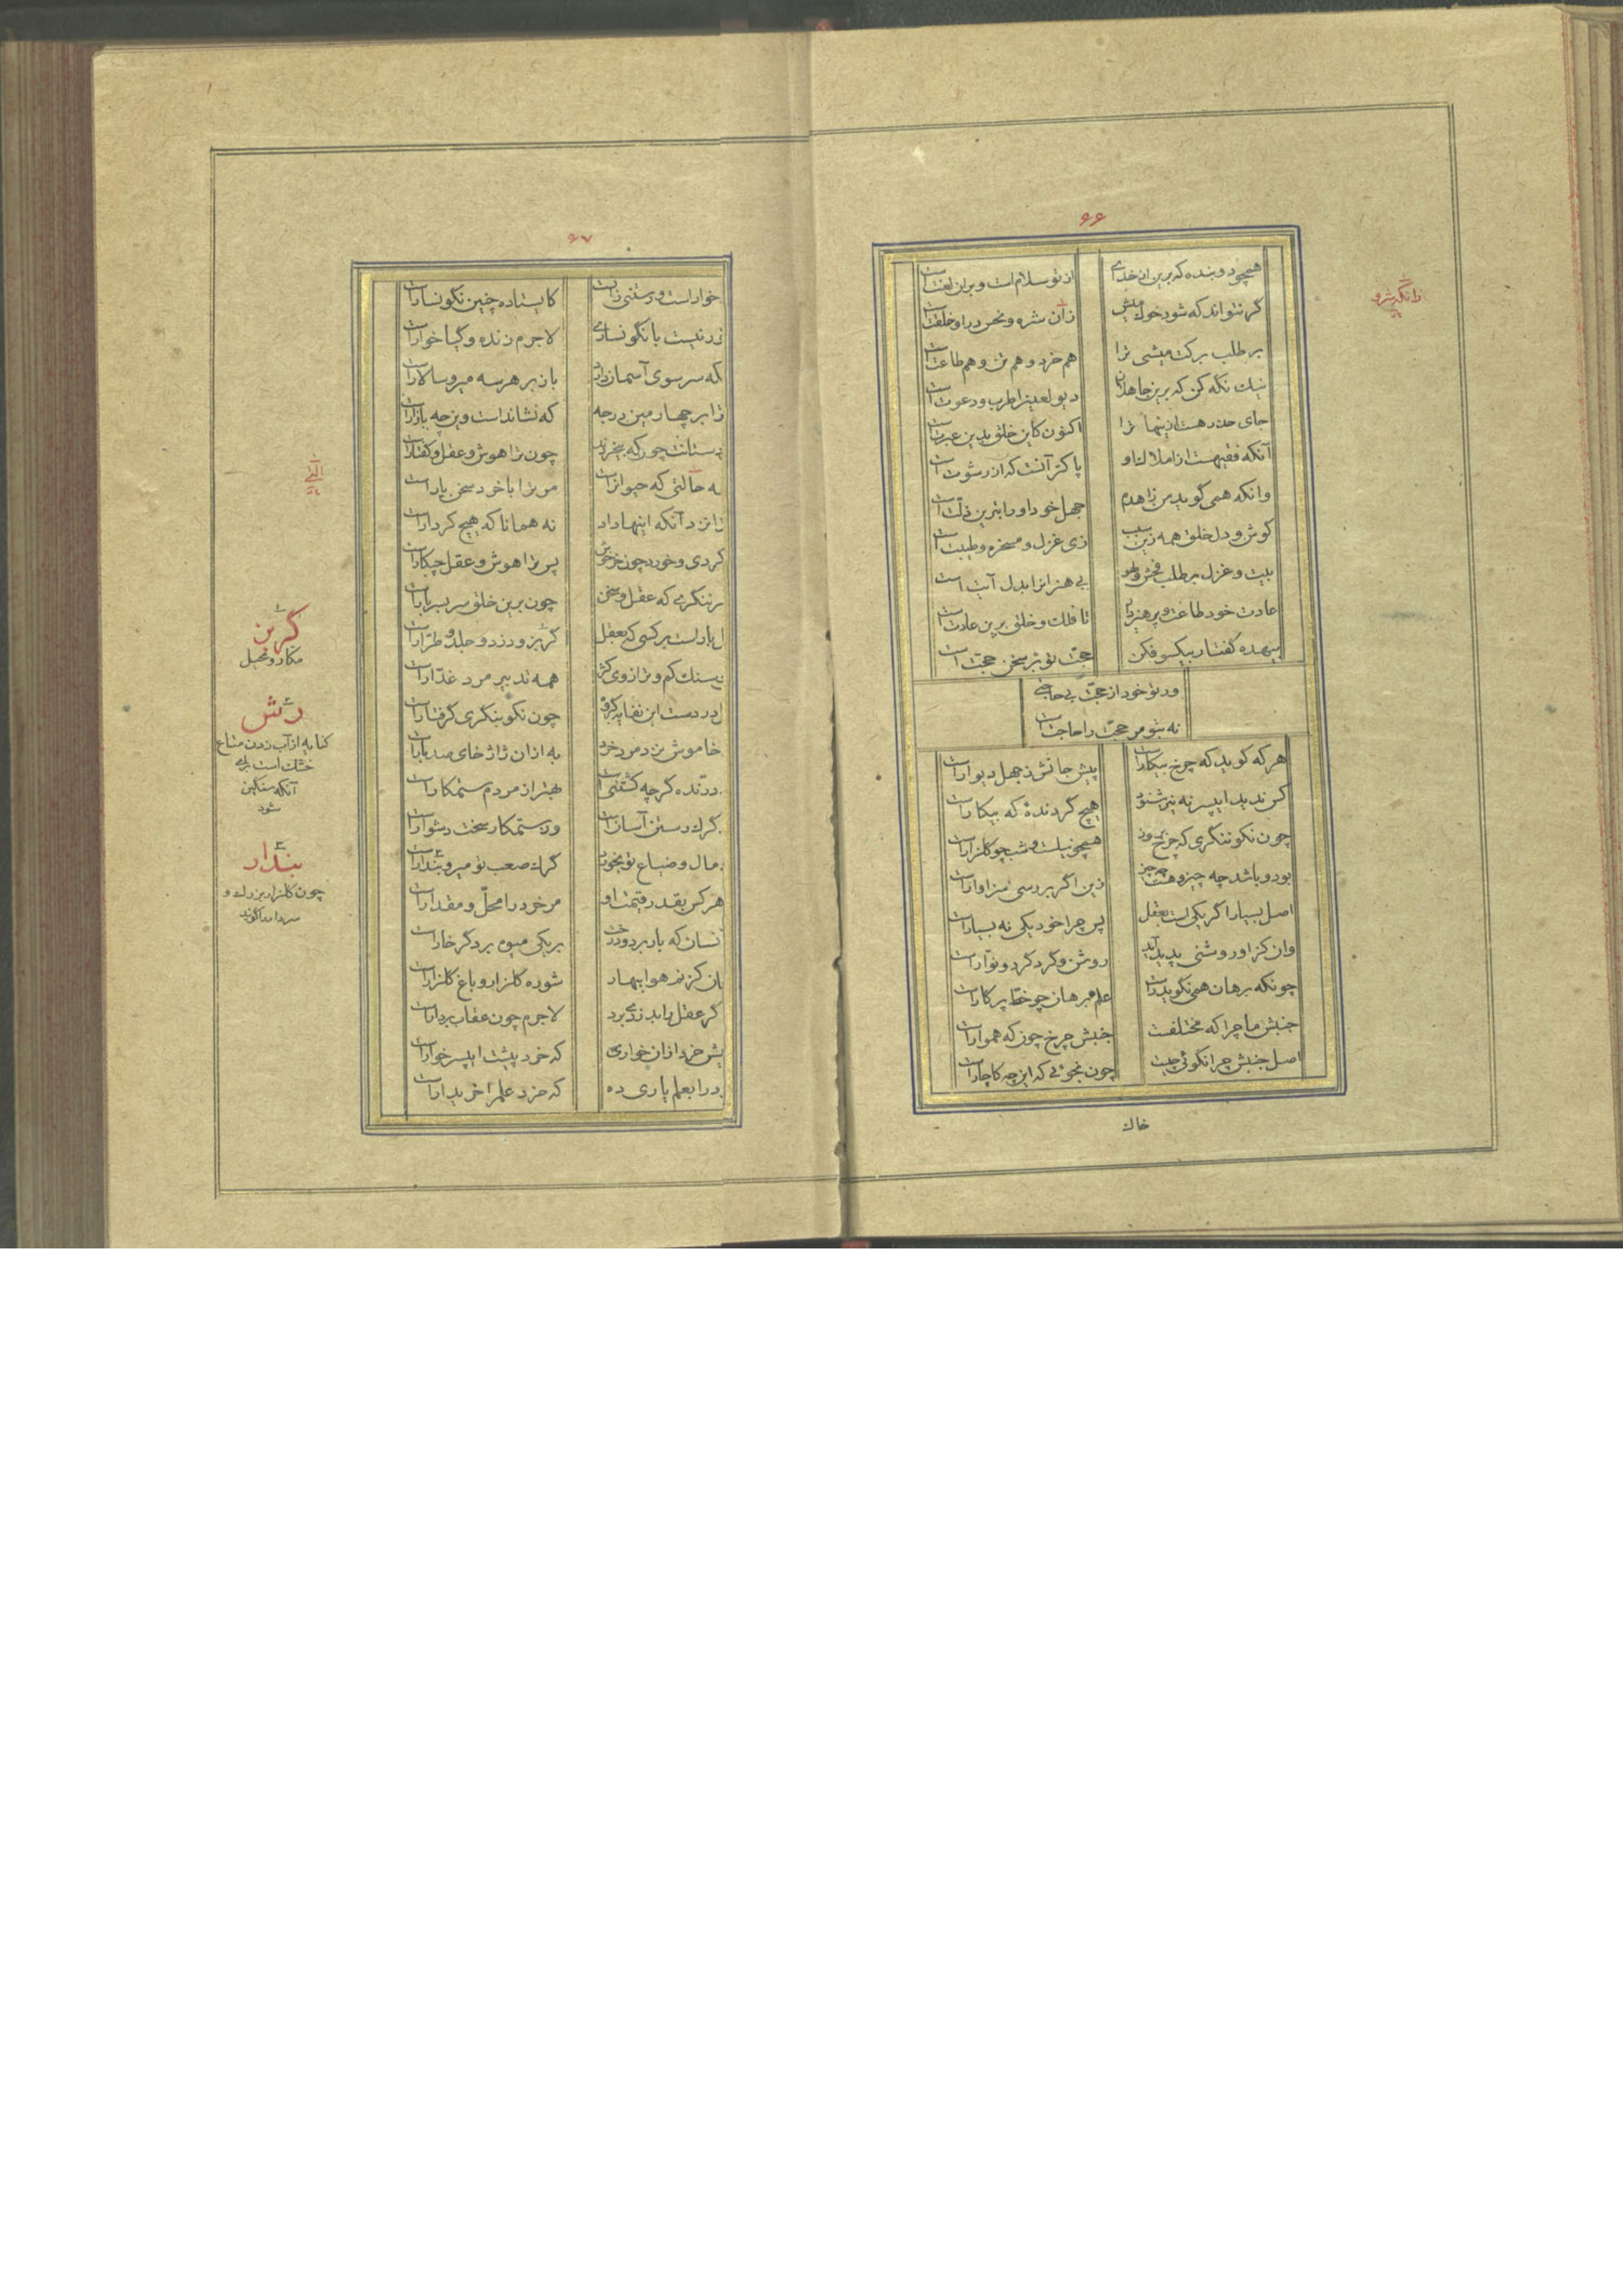 ۶۶
همچو دو بنده که برین از خدای از تو سلام است و بران لعنت است
گر نتواند که شود خوک میش زان شره و نحس در او خلقت است
بر طلب برکت میشی ترا هم خرد و هم تن و هم طاعت است
نیک نگه کن که برین جاهلان دیو لعین را طرب و دعوت است
جای حذر هست ازینها ترا اکنون کاین خلق بدین عبرت است
آنکه فقیه است از املاک او پاکتر آنست که از رشوت است
وانکه همی گوید من زاهدم جهل خود او را بترین ذلت است
گوش و دل خلق همه زین سبب زی غزل و مسخره و طیبت است
بیت و غزل بر طلب فحش و لهو بی هنران را بدل آیت است
عادت خود طاعت و پرهیز دار تا فلک و خلق برین عادت است
بیهده گفتار بیکسو فکن حجت تو بر سخن حجت است
ور تو خود از حجت بی حاجتی
نه بتو مر حجت را حاجت است
هر که گوید که چرخ بیکار است پیش جانش ز جهل دیوار است
کس ندید ای پسر نه نیز شنود هیچ گردندهٔ که بیکار است
چون نکو ننگری که چرخ بروز همچو نیل است و شب چو گلزار است
بود و باشد چه چیز و هست چه چیز زین اگر بررسی سزاوار است
اصل بسیار اگر یکی است بعقل پس چرا خود یکی نه بسیار است
وان کز او روشنی پدید آید روشن و گرد گرد و نوّار است
چونکه برهان همی نگوید راست علم برهان چو خط پرگار است
جنبش ما چرا که مختلفست جنبش چرخ چون که هموار است
اصل جنبش چرا نگوئی چیست چون نجوئی که این چه کاچار است
خاک
زانگه شره
۶۷
خوار است و رستنی زنـ است کایستاده چنین نگونسار است
نیست با نگونساری لاجرم زنده و گیا خوار است
که سر سوی آسمان دارد باز بر هر سه میر و سالار است
ترا بر چهارمین درجه که نشاند است و این چه بازار است
چون که بخرند چون ترا هوش و عقل و گفتار است
به حالتی که حیوان راست مر ترا با خرد سخن یار است
زانزد آنکه اینها داد نه همانا که هیچ کردار است
کردی و خورد چون خر خویش پس ترا هوش و عقل چکار است
ننگری که عقل و سخن چون برین خلق سر بسر بار است
بار است بر کسی که بعقل گربز و دزد و جلد و طرّار است
سنگ کم و ترازوی کژ همه تدبیر مرد غدّار است
در دست این نفایه گروه چون نکو بنگری گرفتار است
خاموش نزد مرد خرد به ازان ژاژ خای صد بار است
درّنده گرچه کشتنی است بهتر از مردم ستمکار است
گرگ رستن آسان است وز ستمکار سخت دشوار است
مال و ضیاع تو نخورد گرگ صعب تو میر و بندار است
هر کس بقدر قیمت او مر خرد را محلّ و مقدار است
آنسان که بار بر دو درخت بر یکی میوه بر دگر خار است
کز نم هوا ببهار شوره گلزار و باغ گلزار است
گر عقل یابد زی برد لاجرم چون عقاب بردار است
خرد ازان خواری که خرد پیشت ای پسر خوار است
را بعلم یاری ده که خرد علم را خریدار است
گربز
مکار و محیل
دش
کنایه از آب زدن متاع
خشک است برای
آنکه سنگین
شود
بندار
چون گلزار بزرگ و
سردار را گویند